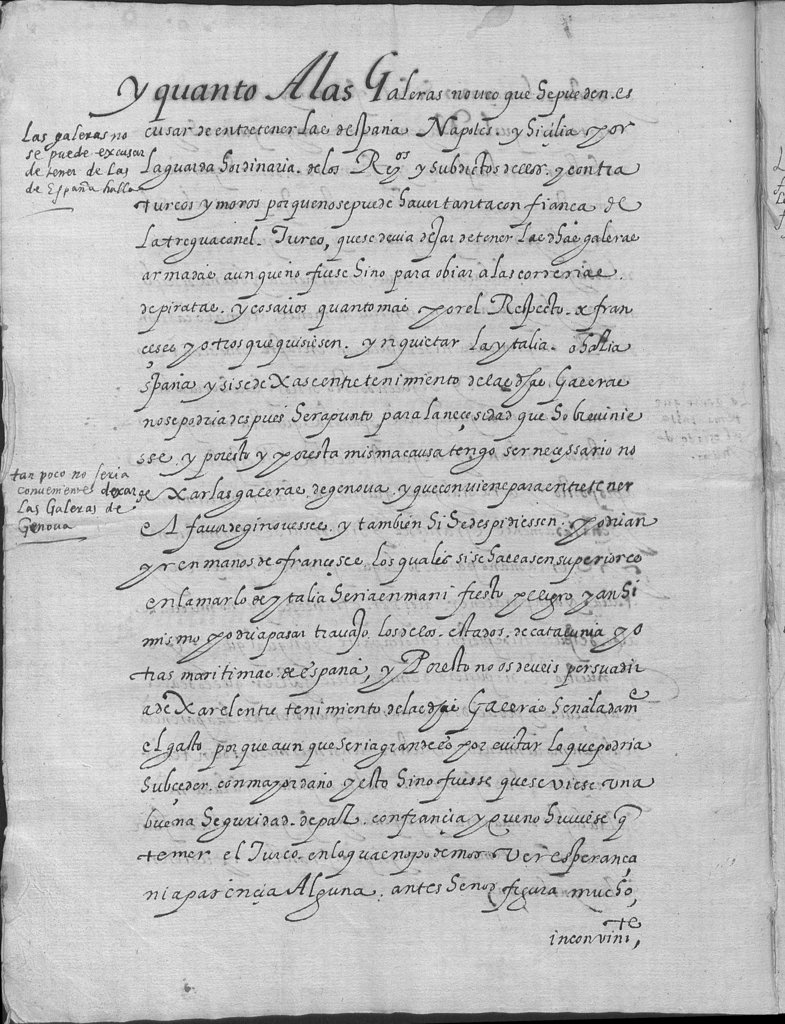 y quanto A las Galeras no veo que se pueden es
Las galeras no
se puede excusar
de tener de las
de España halla
cusar de entretener las de españa Napoles y Siçilia por
la guarda hordinaria de los Reyos y subdictos dellos y contra
turcos y moros porque no se puede haver tanta confiança de
La tregua con el Turco, que se devia dejar de tener las dhas galeras
armadas aunque no fuese sino para obiar a las correrias
de piratas y cosarios quanto mas por el Respecto x fran
ceses y otros que quisiesen ynquietar la ytalia o hasta
spaña y si se dexase entretenimiento de las dhas Galeras
no se podria despues ser a punto para la neçesidad que sobrevinie
sse y por esto y por esta misma causa tengo ser necessario no
tan poco no seria
conveniente dexar
Las Galeras de
Genova
dexar las galeras de genova y que conviene para entretener
el favor de ginovesses y tambien si se despidiessen podrian
yr en manos de franceses los quales si se hallasen superiores
en la mar lo de ytalia seria en manifiesto peligro y ansi
mismo podria pasar travajo los de los estados de catalunia y o
tras maritimas de españa, y Por esto no os deveis persuadir
a dexar el entretenimiento de las dhas Galeras señaladamte
el gasto porque aunque seria grande es por evitar lo que podria
subçeder con mayor daño y esto sino fuesse que se viese una
buena seguridad de paz confiança y que no huviese q
temer el Turco en lo qual no podemos ver esperança
ni aparençia Alguna antes se nos figura mucho,
inconvinite,